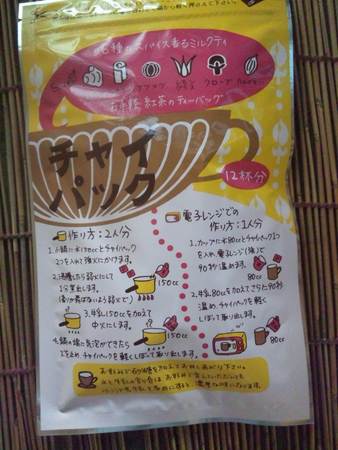 6種のスパイス香るミルクティ
クローブ
お手軽 紅茶のティーバッグ
チャイ
パック
12杯分
作り方:2人分
1.小鍋に水150ccとチャイパック
2つを入れて強火にかけます。
2.沸騰したら弱火にして
1分煮出します。
150cc
3.牛乳150ccを加えて
中火にします。
150cc
4.鍋の縁に気泡ができたら
火を止め、チャイパックを軽くしぼって取り出します。
電子レンジでの
作り方:1人分
1.カップに水80ccとチャイパック1つ
を入れ、電子レンジ(強)で
90秒温めます。
80cc
2.牛乳80ccを加えてさらに90秒
温め、チャイパックを軽く
しぼって取り出します。
80cc
お好みで砂糖を加えてお召し上がり下さい。